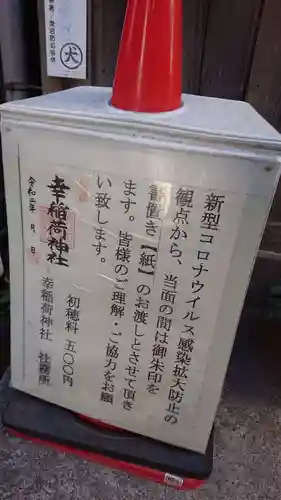 犬
新型コロナウイルス感染拡大防止の
観点から、当面の間は御朱印を
書置き【紙】のお渡しとさせて頂き
ます。皆様のご理解・ご協力をお願
い致します。
初穂料 五〇〇円
幸稲荷神社 社務所
幸稲荷神社
令和二年 月 日